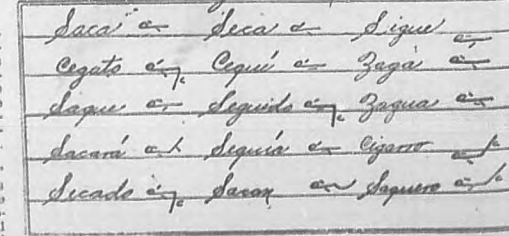 Saca Seca Sigue
Cegato Cequí Zaga
Saque Seguido Zagua
Sacará Seguía Cigarro
Secado Sacan Saquero